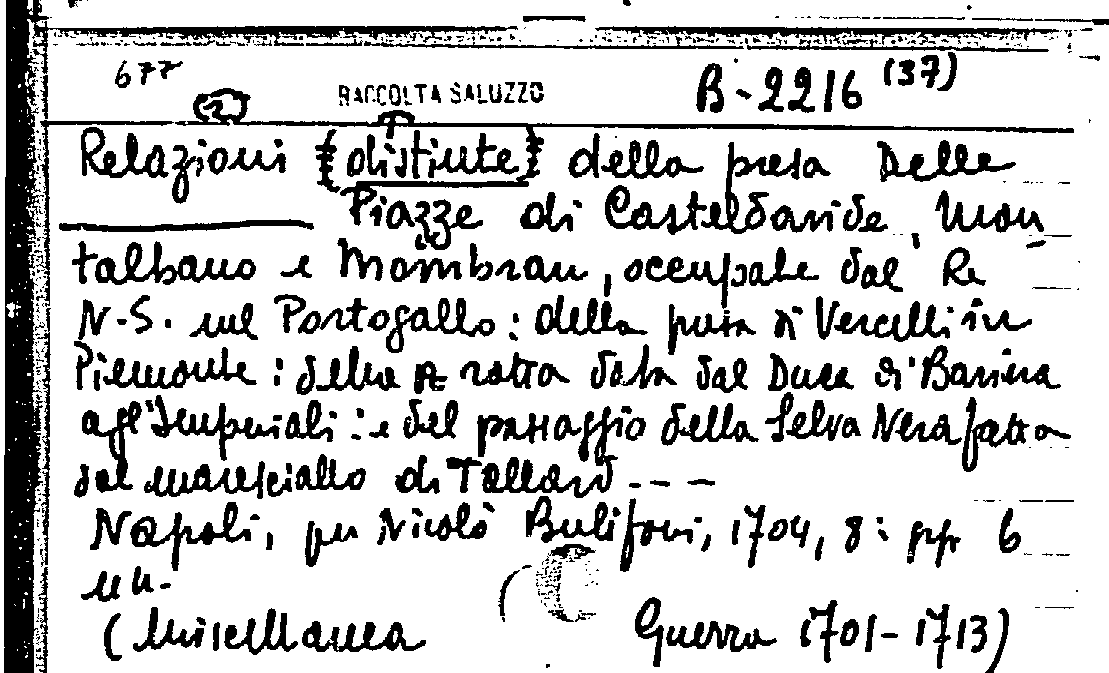 677
RACCOLTA SALUZZO B-2216 (37)
Relazioni distinte della presa Delle
Piazze di Casteldavide, Mon
talbano e Mombran, occupate dal Re
N.S. nel Portogallo: della presa di Vercelli in
Piemonte: della rotta data dal Duca di Baviera
agl'Imperiali: e del passaggio della Selva Nera fatto
dal maresciallo di Tallard ---
Napoli, per Nicolò Bulifoni, 1704, 8: pp 6
nn.
(Miscellanea Guerra 1701-1713)